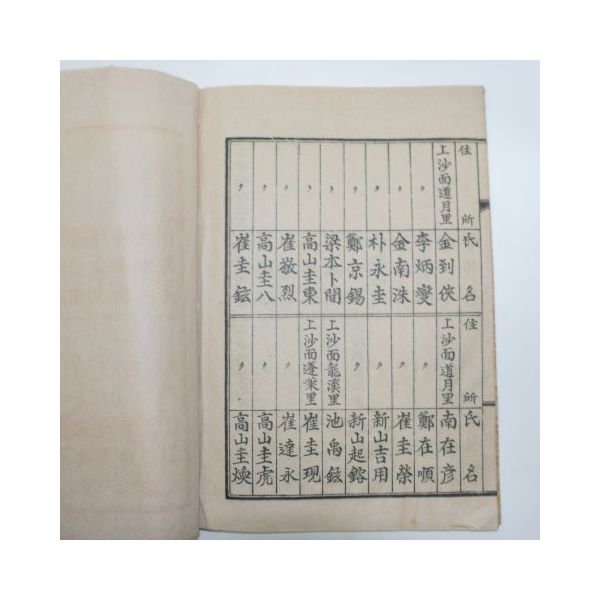 住所 氏名 住所 氏名
上沙面道月里 金到俠 上沙面道月里 南在彦
〃 李炳燮 〃 鄭在順
〃 金南洙 〃 崔圭榮
〃 朴永圭 〃 新山吉用
〃 鄭京錫 〃 新山起鎔
〃 梁本卜間 上沙面龍溪里 池禹鉉
〃 高山圭東 上沙面蓬萊里 崔圭現
〃 崔敬烈 〃 崔達永
〃 高山圭八 〃 高山圭虎
〃 崔圭鉉 〃 高山圭煥